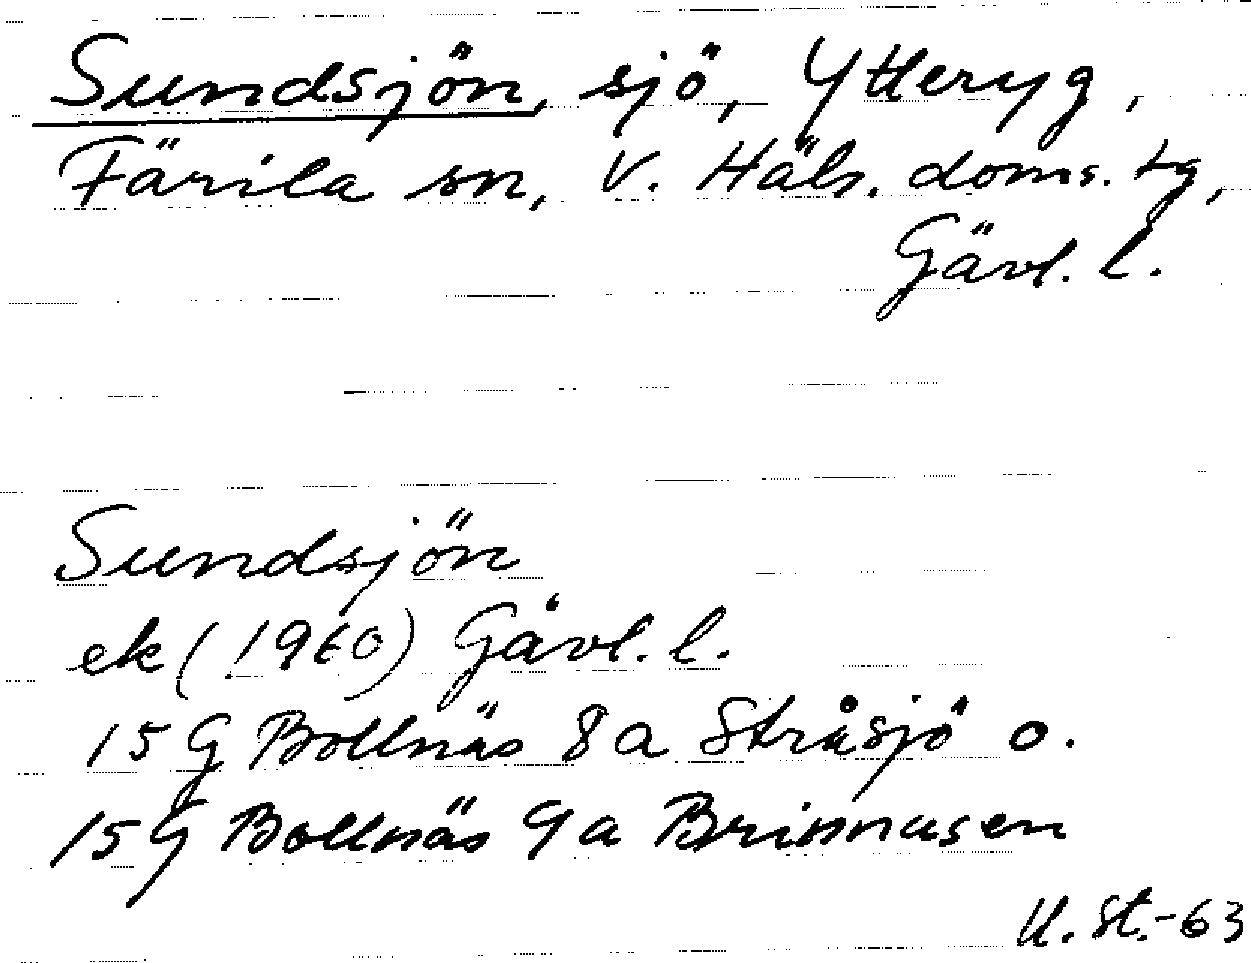 Sundsjön, sjö, Ytteryg,
Färila sn, V. Häls. doms. tg,
Gävl. l.
Sundsjön
ek (1960) Gävl. l.
15 G Bollnäs 8 a Stråsjö o.
15 G Bollnäs 9 a Brinnasen
U. St.-63